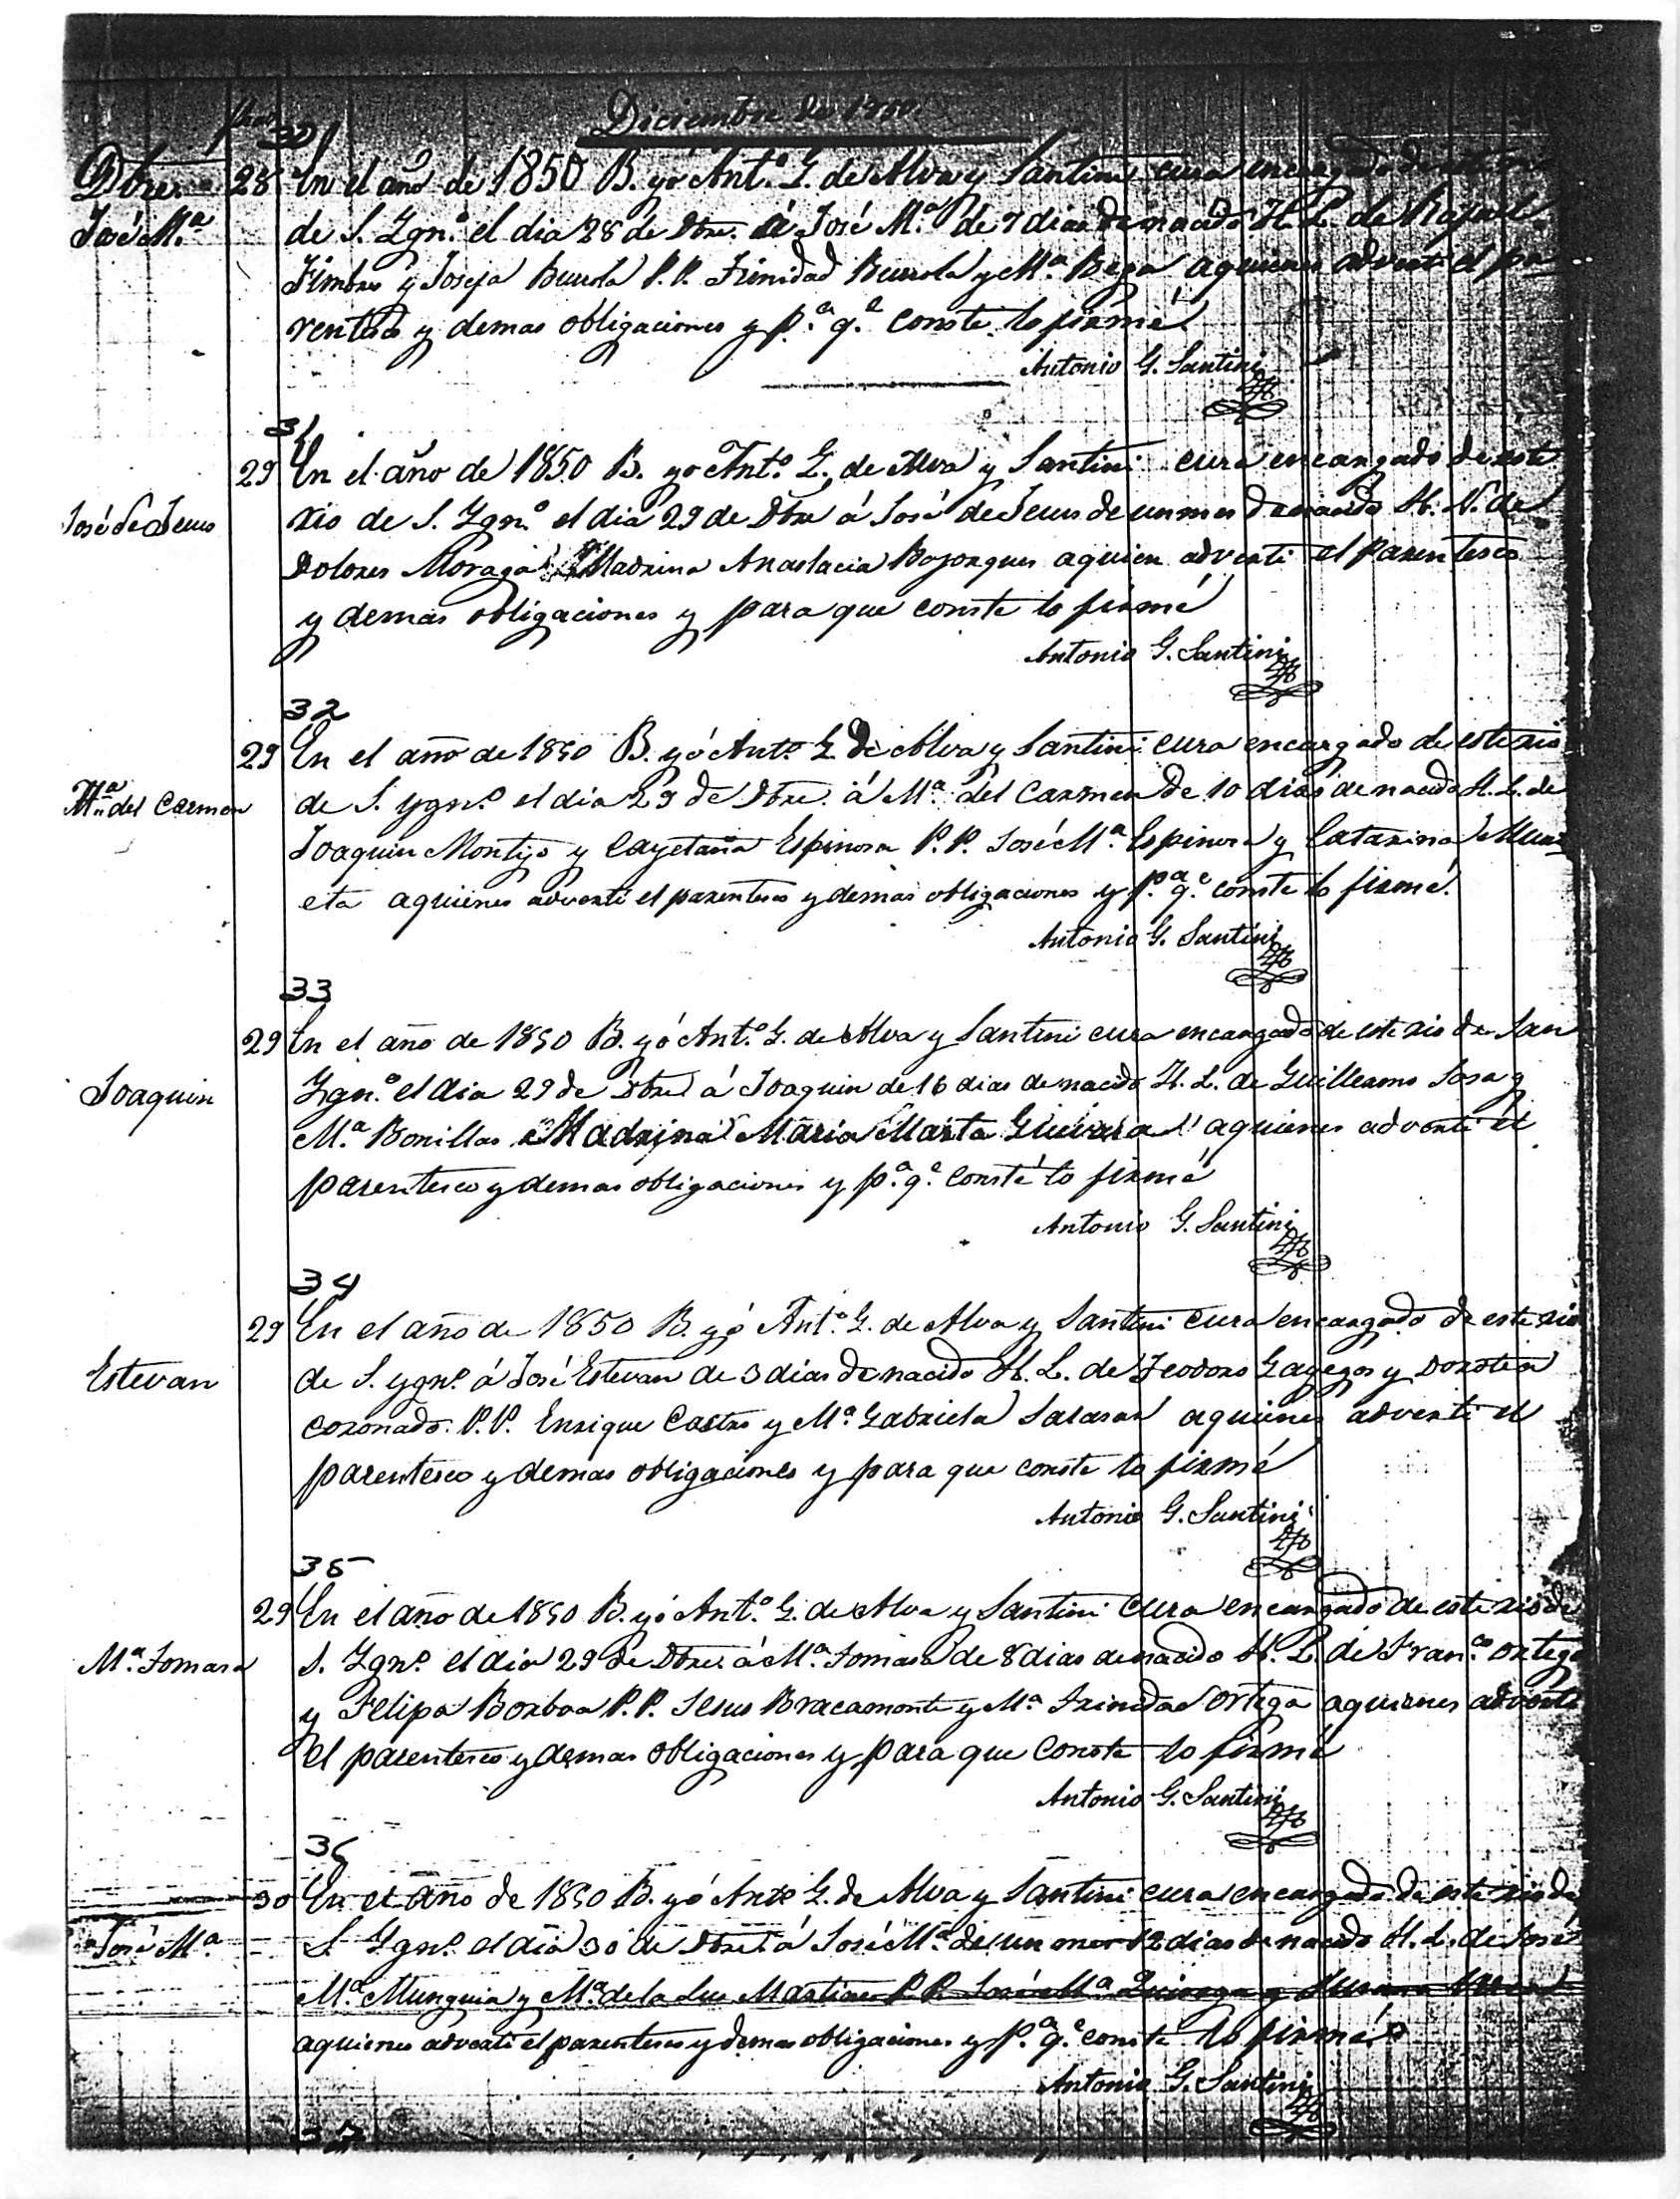 Diciembre de 1850.
Dbre. 28 En el año de 1850 B. yó Ant.º G. de Alva y Santini cura encargado de este rio
José M.ª de S. Ygn.º el dia 28 de Dbre. á José M.ª de 7 dias de nacido H. L. de Rafael
Fimbres y Josefa Burrola P. P. Trinidad Burrola y M.ª Bega aquienes adverti el pa
rentesco y demas obligaciones y p.ª q.e conste lo firmé
Antonio G. Santini
31
29 En el año de 1850 B. yo Ant.º G. de Alva y Santini cura encargado de este
José de Jesus rio de S. Ygn.º el dia 29 de Dbre á José de Jesus de un mes de nacido H. N. de
Dolores Moraga Madrina Anastacia Bojorques aquien adverti el parentesco
y demas obligaciones y para que conste lo firmé
Antonio G. Santini
32
29 En el año de 1850 B. yó Ant.º G. de Alva y Santini cura encargado de este rio
M.ª del Carmen de S. Ygn.º el dia 29 de Dbre. á M.ª del Carmen de 10 dias de nacida H. L. de
Joaquin Montijo y Cayetana Espinosa P. P. José M.ª Espinosa y Catarina
eta aquienes adverti el parentesco y demas obligaciones y p.ª q.e conste lo firmé.
Antonio G. Santini
33
29 En el año de 1850 B. yó Ant.º G. de Alva y Santini cura encargado de este rio de San
Joaquin Ygn.º el dia 29 de Dbre á Joaquin de 16 dias de nacido H. L. de Guillermo Sosa y
M.ª Bonillas Madrina Maria Marta aquienes adverti el
parentesco y demas obligaciones y p.ª q.e conste lo firmé
Antonio G. Santini
34
29 En el año de 1850 B. yó Ant.º G. de Alva y Santini cura encargado de este rio
Estevan de S. Ygn.º á José Estevan de 3 dias de nacido H. L. de Teodoro Gayegos y Dorotea
Coronado. P. P. Enrique Castro y M.ª Gabriela Salasar aquienes adverti el
parentesco y demas obligaciones y para que conste lo firmé
Antonio G. Santini
35
29 En el año de 1850 B. yó Ant.º G. de Alva y Santini cura encargado de este rio de
M.ª Tomasa S. Ygn.º el dia 29 de Dbre. á M.ª Tomasa de 8 dias de nacido H. L. de Fran.co Ortega
y Felipa Borboa P. P. Jesus Bracamonte y M.ª Trinidad Ortega aquienes adverti
el parentesco y demas obligaciones y para que conste lo firmé
Antonio G. Santini
36
30 En el año de 1850 B. yó Ant.º G. de Alva y Santini cura encargado de este rio de
José M.ª S. Ygn.º el dia 30 de Dbre á José M.ª de un mes 12 dias de nacido H. L. de José
M.ª Munguia y M.ª de la Luz Martines P. P. José M.ª Quiroga y
aquienes adverti el parentesco y demas obligaciones y p.ª q.e conste lo firmé
Antonio G. Santini
37